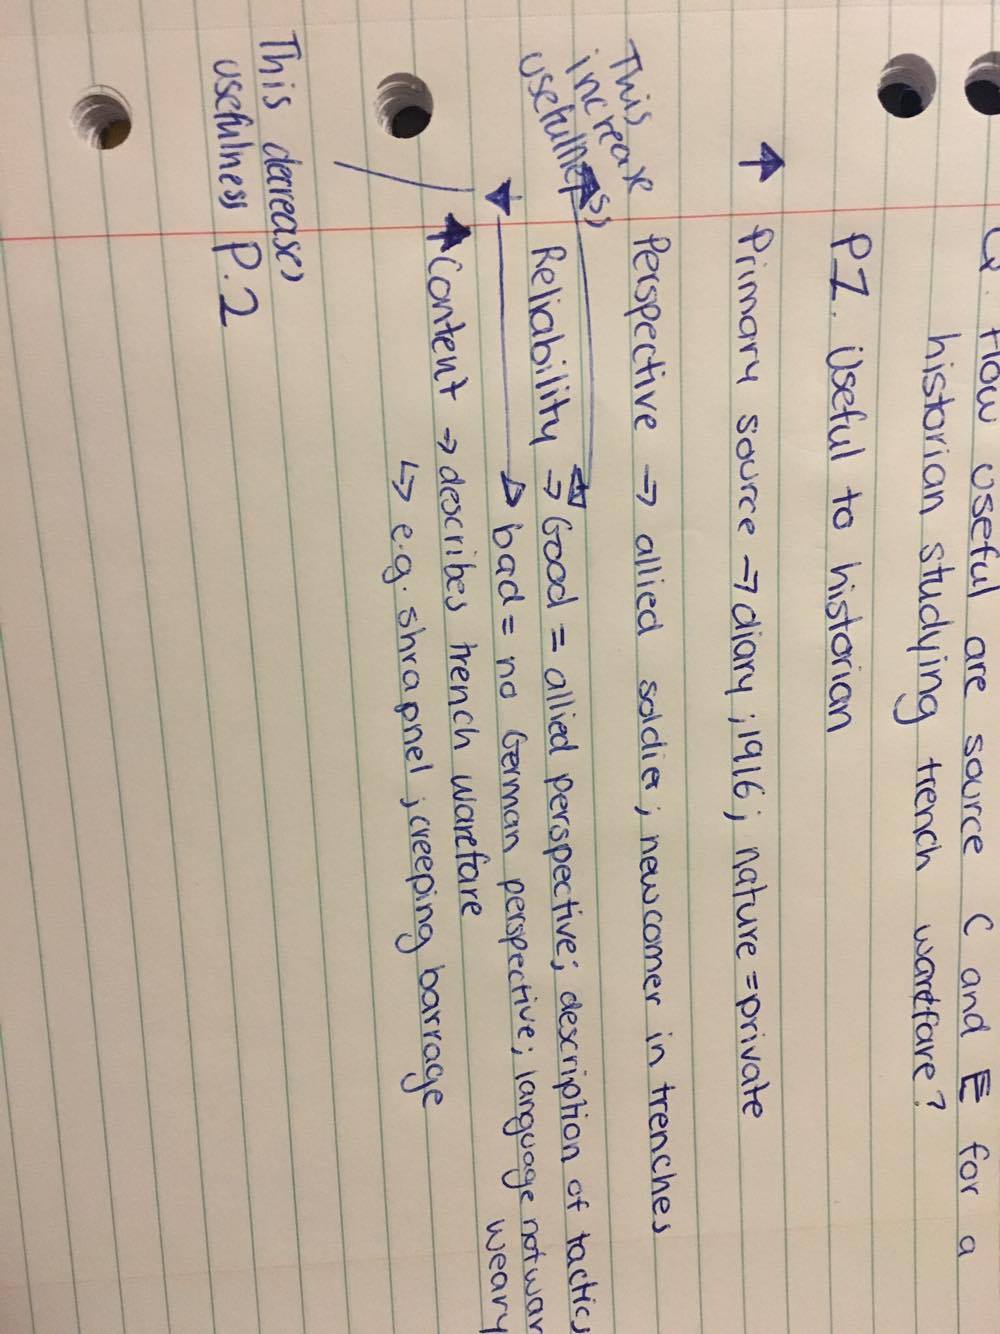 Q. How useful are source C and E for a
historian studying trench warefare?
P1. Useful to historian
Primary source → diary; 1916; nature = private
Perspective → allied soldier; newcomer in trenches
This
increase
usefulness
Reliability → Good = allied perspective; description of tactics
bad = no German perspective; language not war
weary
Content → describes trench warefare
↳ e.g. shrapnel; creeping barrage
This decreases
usefulness P.2